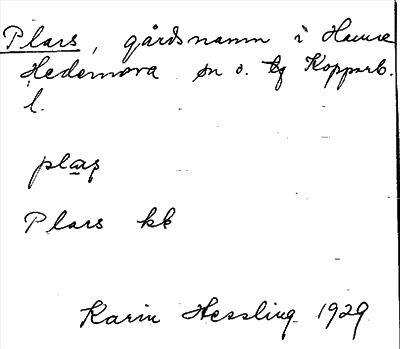 Plars, gårdsnamn i
Hedemora sn o. tg Kopparb.
l.
plaş
Plars kb
Karin Hessling 1929